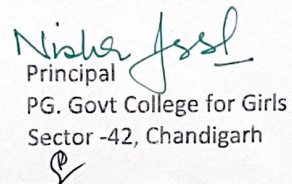 Nisha
Principal
PG. Govt College for Girls
Sector -42, Chandigarh